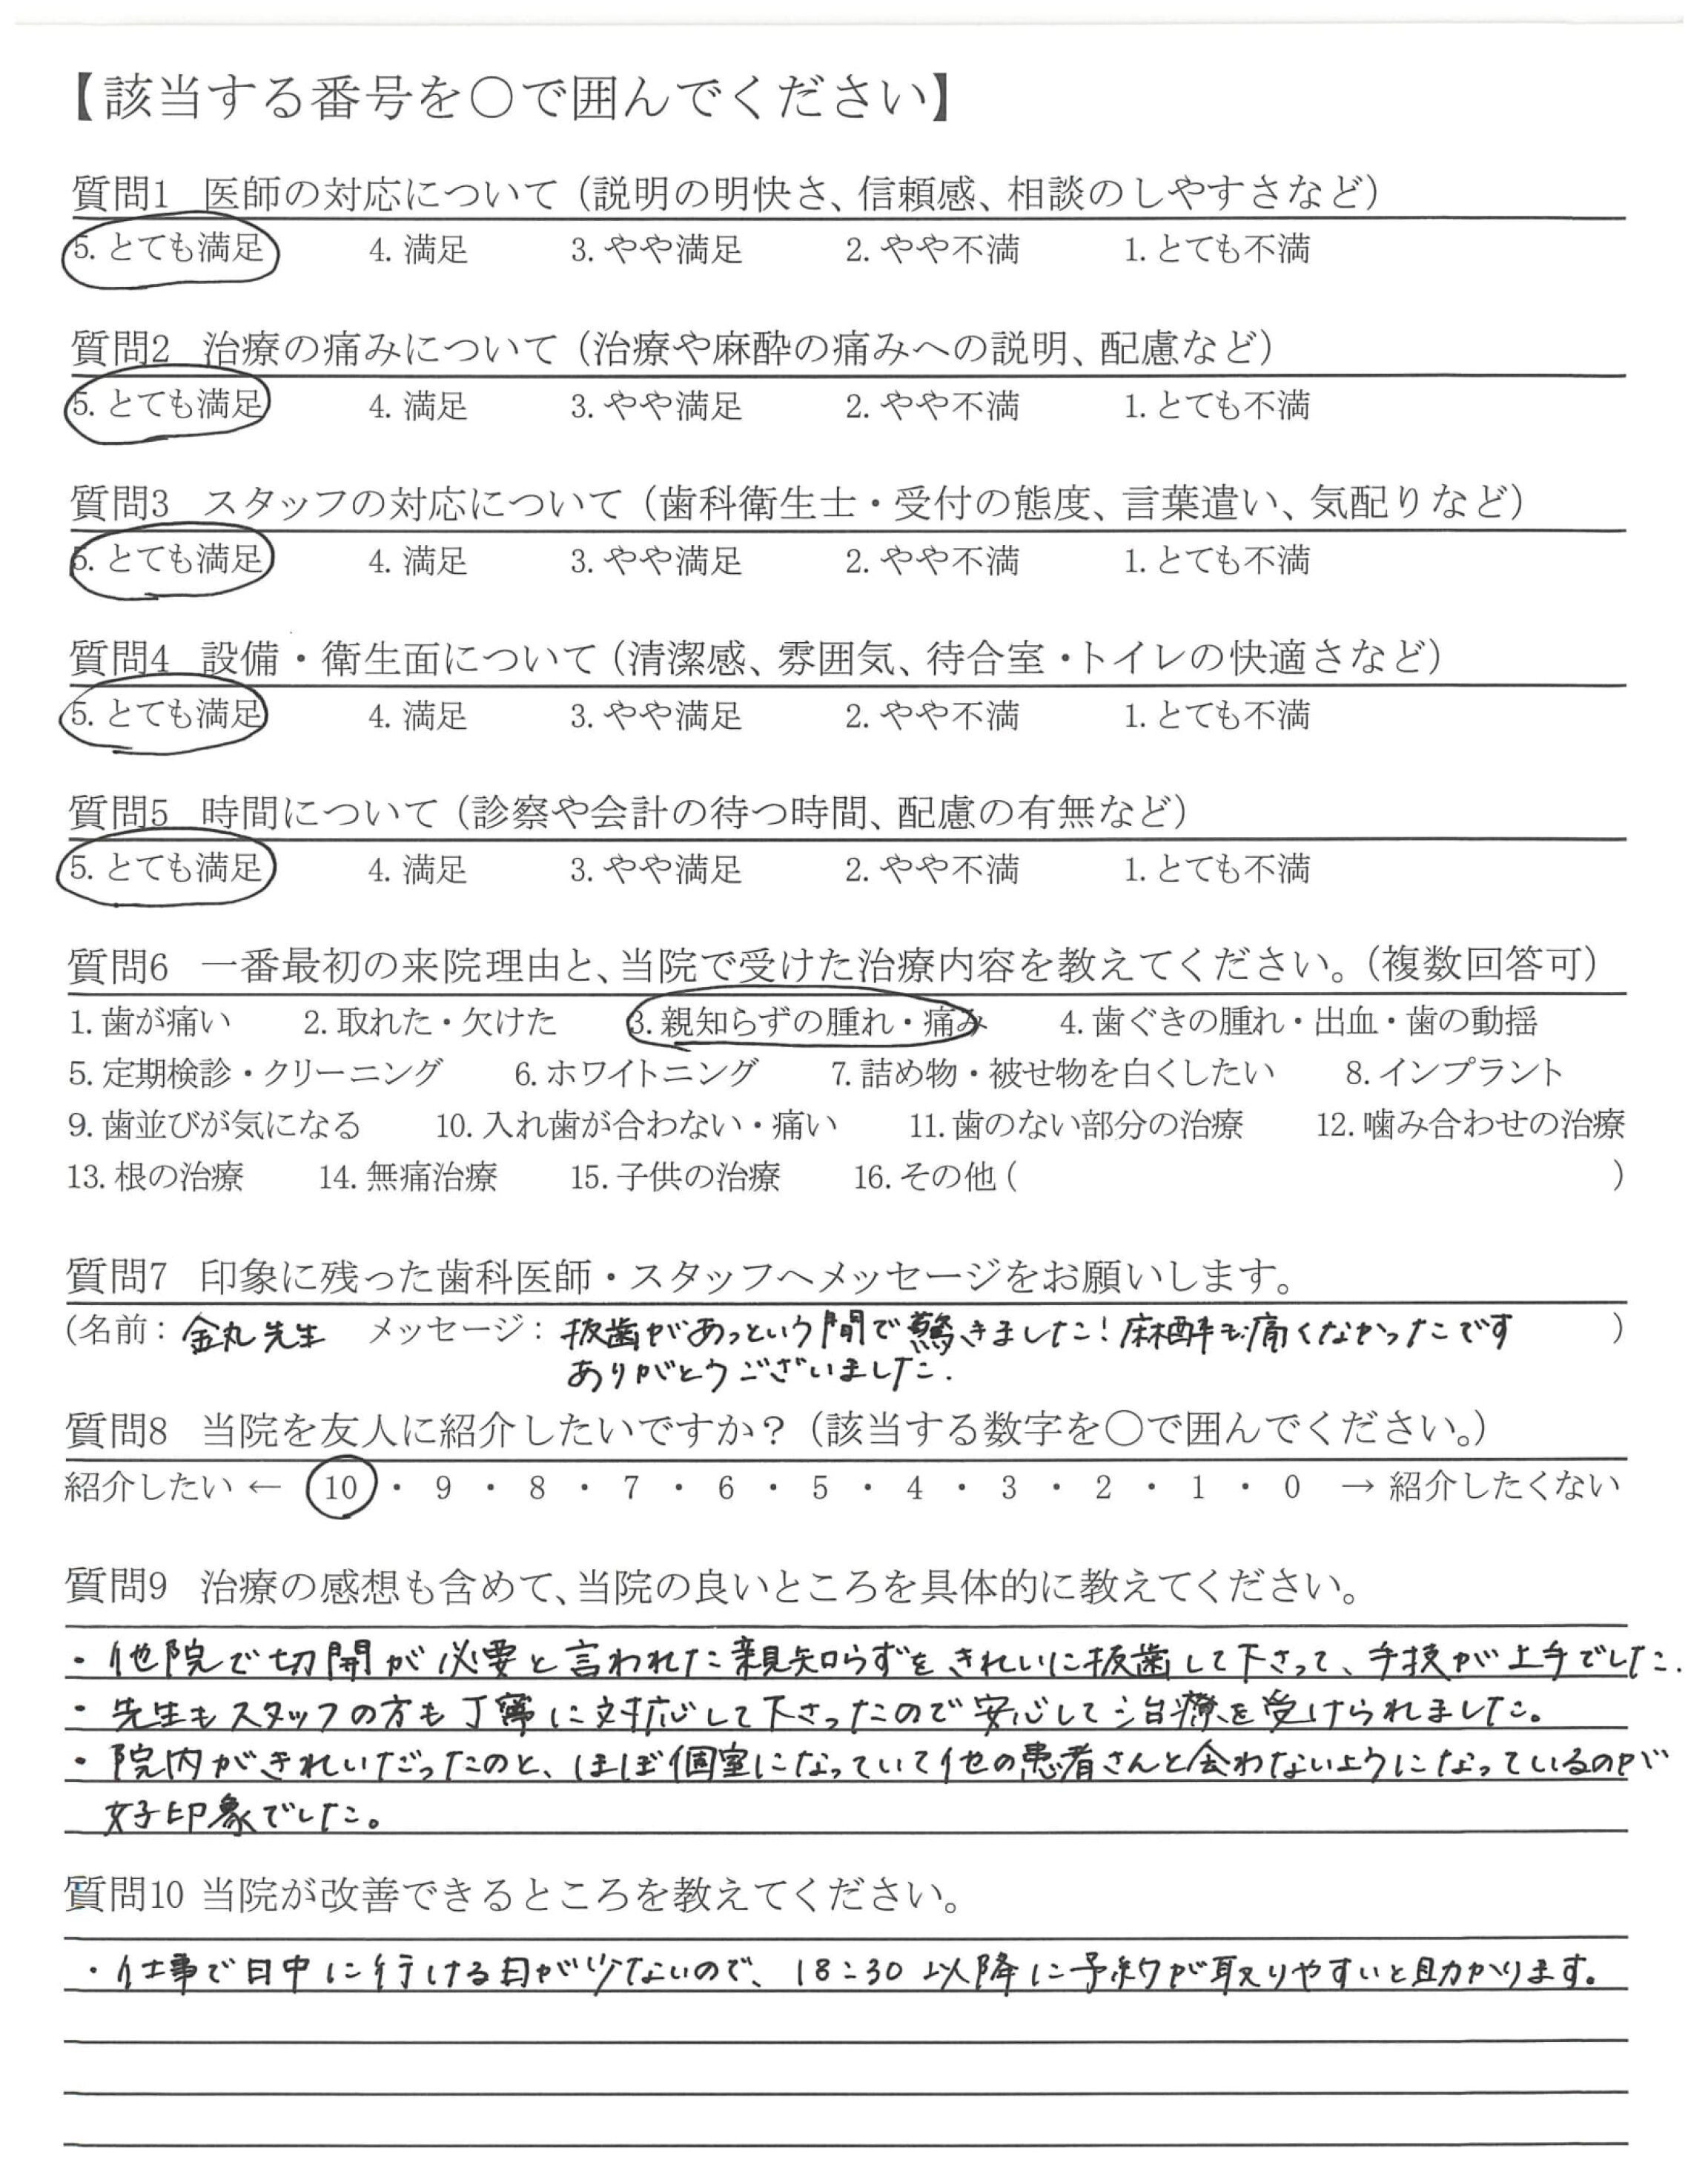 【該当する番号を〇で囲んでください】
質問1 医師の対応について（説明の明快さ、信頼感、相談のしやすさなど）
5. とても満足 4. 満足 3. やや満足 2. やや不満 1. とても不満
質問2 治療の痛みについて（治療や麻酔の痛みへの説明、配慮など）
5. とても満足 4. 満足 3. やや満足 2. やや不満 1. とても不満
質問3 スタッフの対応について（歯科衛生士・受付の態度、言葉遣い、気配りなど）
5. とても満足 4. 満足 3. やや満足 2. やや不満 1. とても不満
質問4 設備・衛生面について（清潔感、雰囲気、待合室・トイレの快適さなど）
5. とても満足 4. 満足 3. やや満足 2. やや不満 1. とても不満
質問5 時間について（診察や会計の待つ時間、配慮の有無など）
5. とても満足 4. 満足 3. やや満足 2. やや不満 1. とても不満
質問6 一番最初の来院理由と、当院で受けた治療内容を教えてください。（複数回答可）
1. 歯が痛い 2. 取れた・欠けた 3. 親知らずの腫れ・痛み 4. 歯ぐきの腫れ・出血・歯の動揺
5. 定期検診・クリーニング 6. ホワイトニング 7. 詰め物・被せ物を白くしたい 8. インプラント
9. 歯並びが気になる 10. 入れ歯が合わない・痛い 11. 歯のない部分の治療 12. 噛み合わせの治療
13. 根の治療 14. 無痛治療 15. 子供の治療 16. その他（ ）
質問7 印象に残った歯科医師・スタッフへメッセージをお願いします。
（名前： 金丸先生 メッセージ： 抜歯があっという間で驚きました！麻酔も痛くなかったです ）
ありがとうございました.
質問8 当院を友人に紹介したいですか？（該当する数字を〇で囲んでください。）
紹介したい ← 10 ・ 9 ・ 8 ・ 7 ・ 6 ・ 5 ・ 4 ・ 3 ・ 2 ・ 1 ・ 0 → 紹介したくない
質問9 治療の感想も含めて、当院の良いところを具体的に教えてください。
・他院で切開が必要と言われた親知らずをきれいに抜歯して下さって、手技が上手でした.
・先生もスタッフの方も丁寧に対応して下さったので安心して治療を受けられました。
・院内がきれいだったのと、ほぼ個室になっていて他の患者さんと会わないようになっているのが
好印象でした。
質問10 当院が改善できるところを教えてください。
・仕事で日中に行ける日が少ないので、18:30以降に予約が取りやすいと助かります。